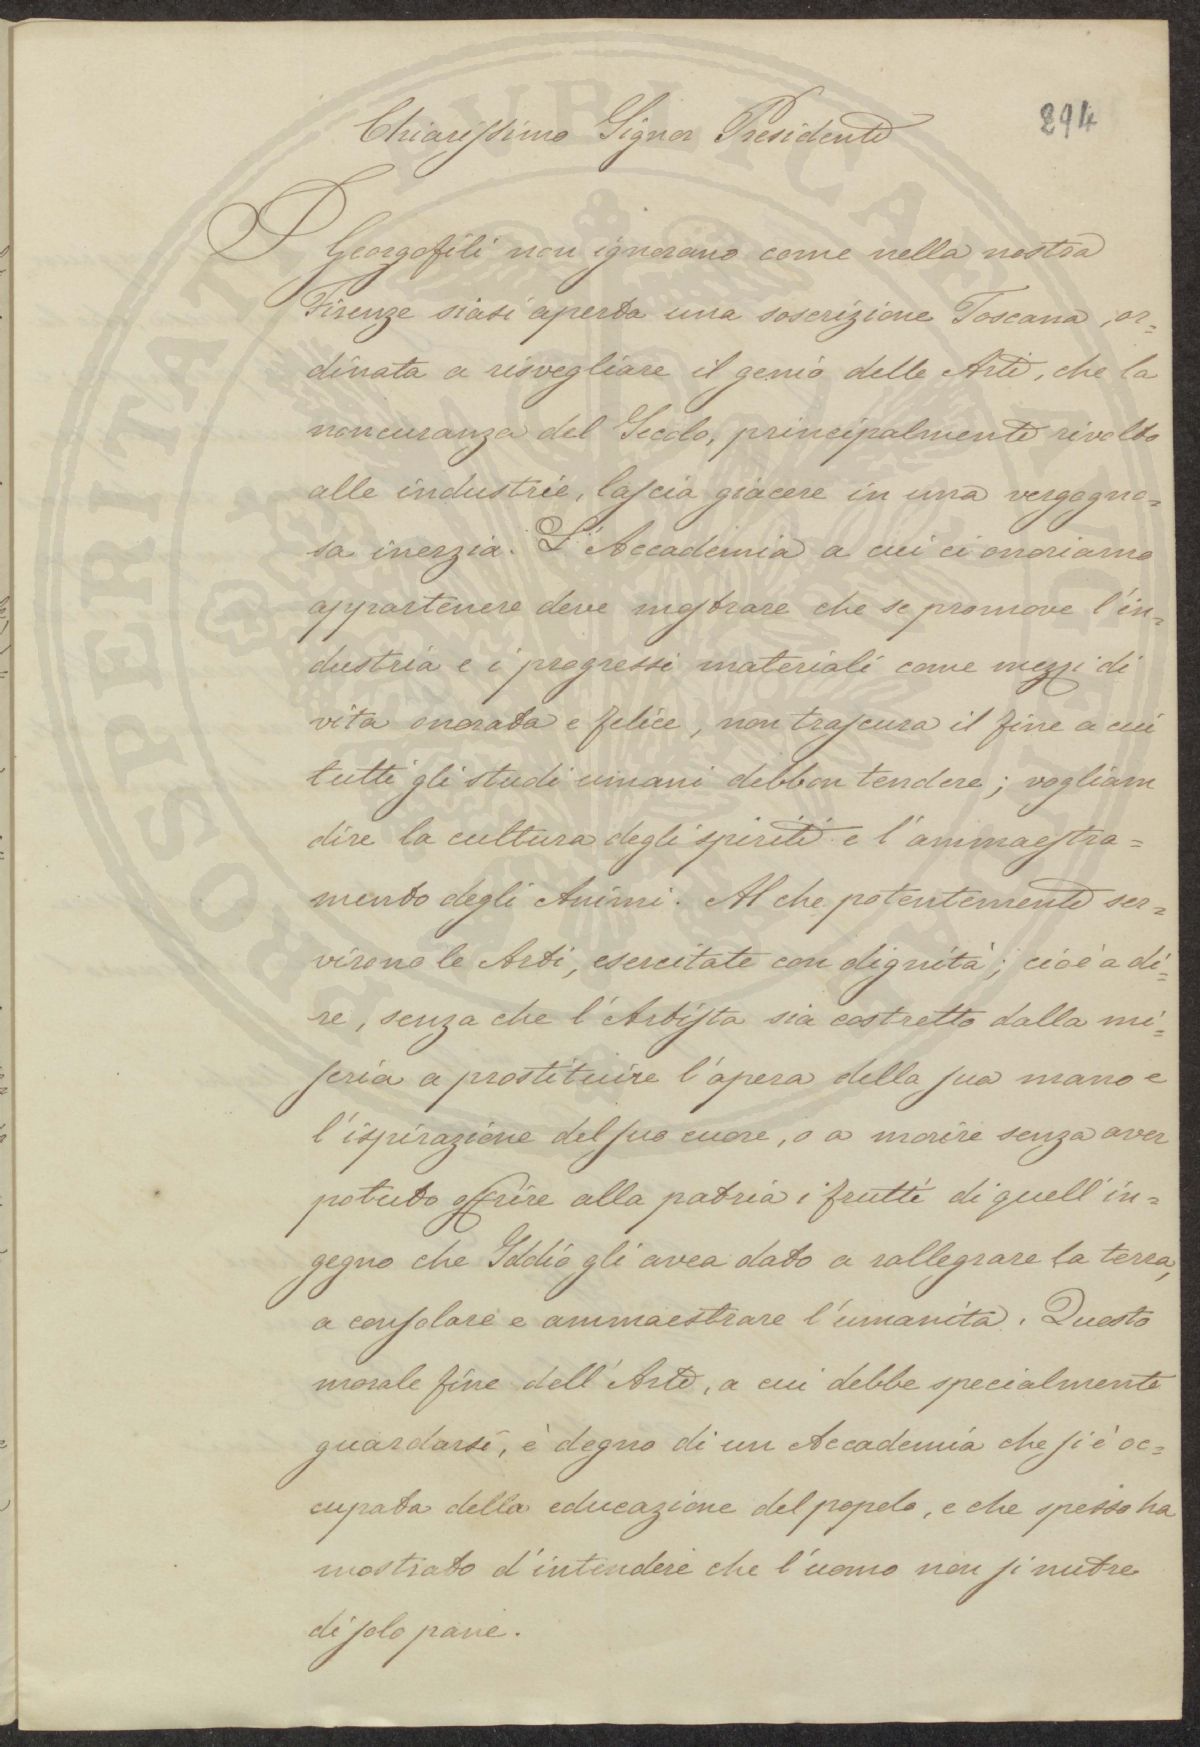 294
Chiarissimo Signor Presidente
I Georgofili non ignorano come nella nostra
Firenze siasi aperta una soscrizione Toscana, or=
dinata a risvegliare il genio delle Arti, che la
noncuranza del Secolo, principalmente rivolto
alle industrie, lascia giacere in una vergogno=
sa inerzia. L'Accademia a cui ci onoriamo
appartenere deve mostrare che se promove l'in=
dustria e i progressi materiali come mezzi di
vita onorata e felice, non trascura il fine a cui
tutti gli studi umani debbon tendere; vogliam
dire la cultura degli spiriti e l'ammaestra=
mento degli Animi. Al che potentemente ser=
virono le Arti, esercitate con dignità; cioè a di=
re, senza che l'Artista sia costretto dalla mi=
seria a prostituire l'opera della sua mano e
l'ispirazione del suo cuore, o a morire senza aver
potuto offrire alla patria i frutti di quell'in=
gegno che Iddio gli avea dato a rallegrare la terra,
a consolare e ammaestrare l'umanità. Questo
morale fine dell'Arte, a cui debbe specialmente
guardarsi, è degno di un Accademia che si è oc=
cupata della educazione del popolo, e che spesso ha
mostrato d'intendere che l'uomo non si nutre
di solo pane.
PROSPERITATI PVBLICAE